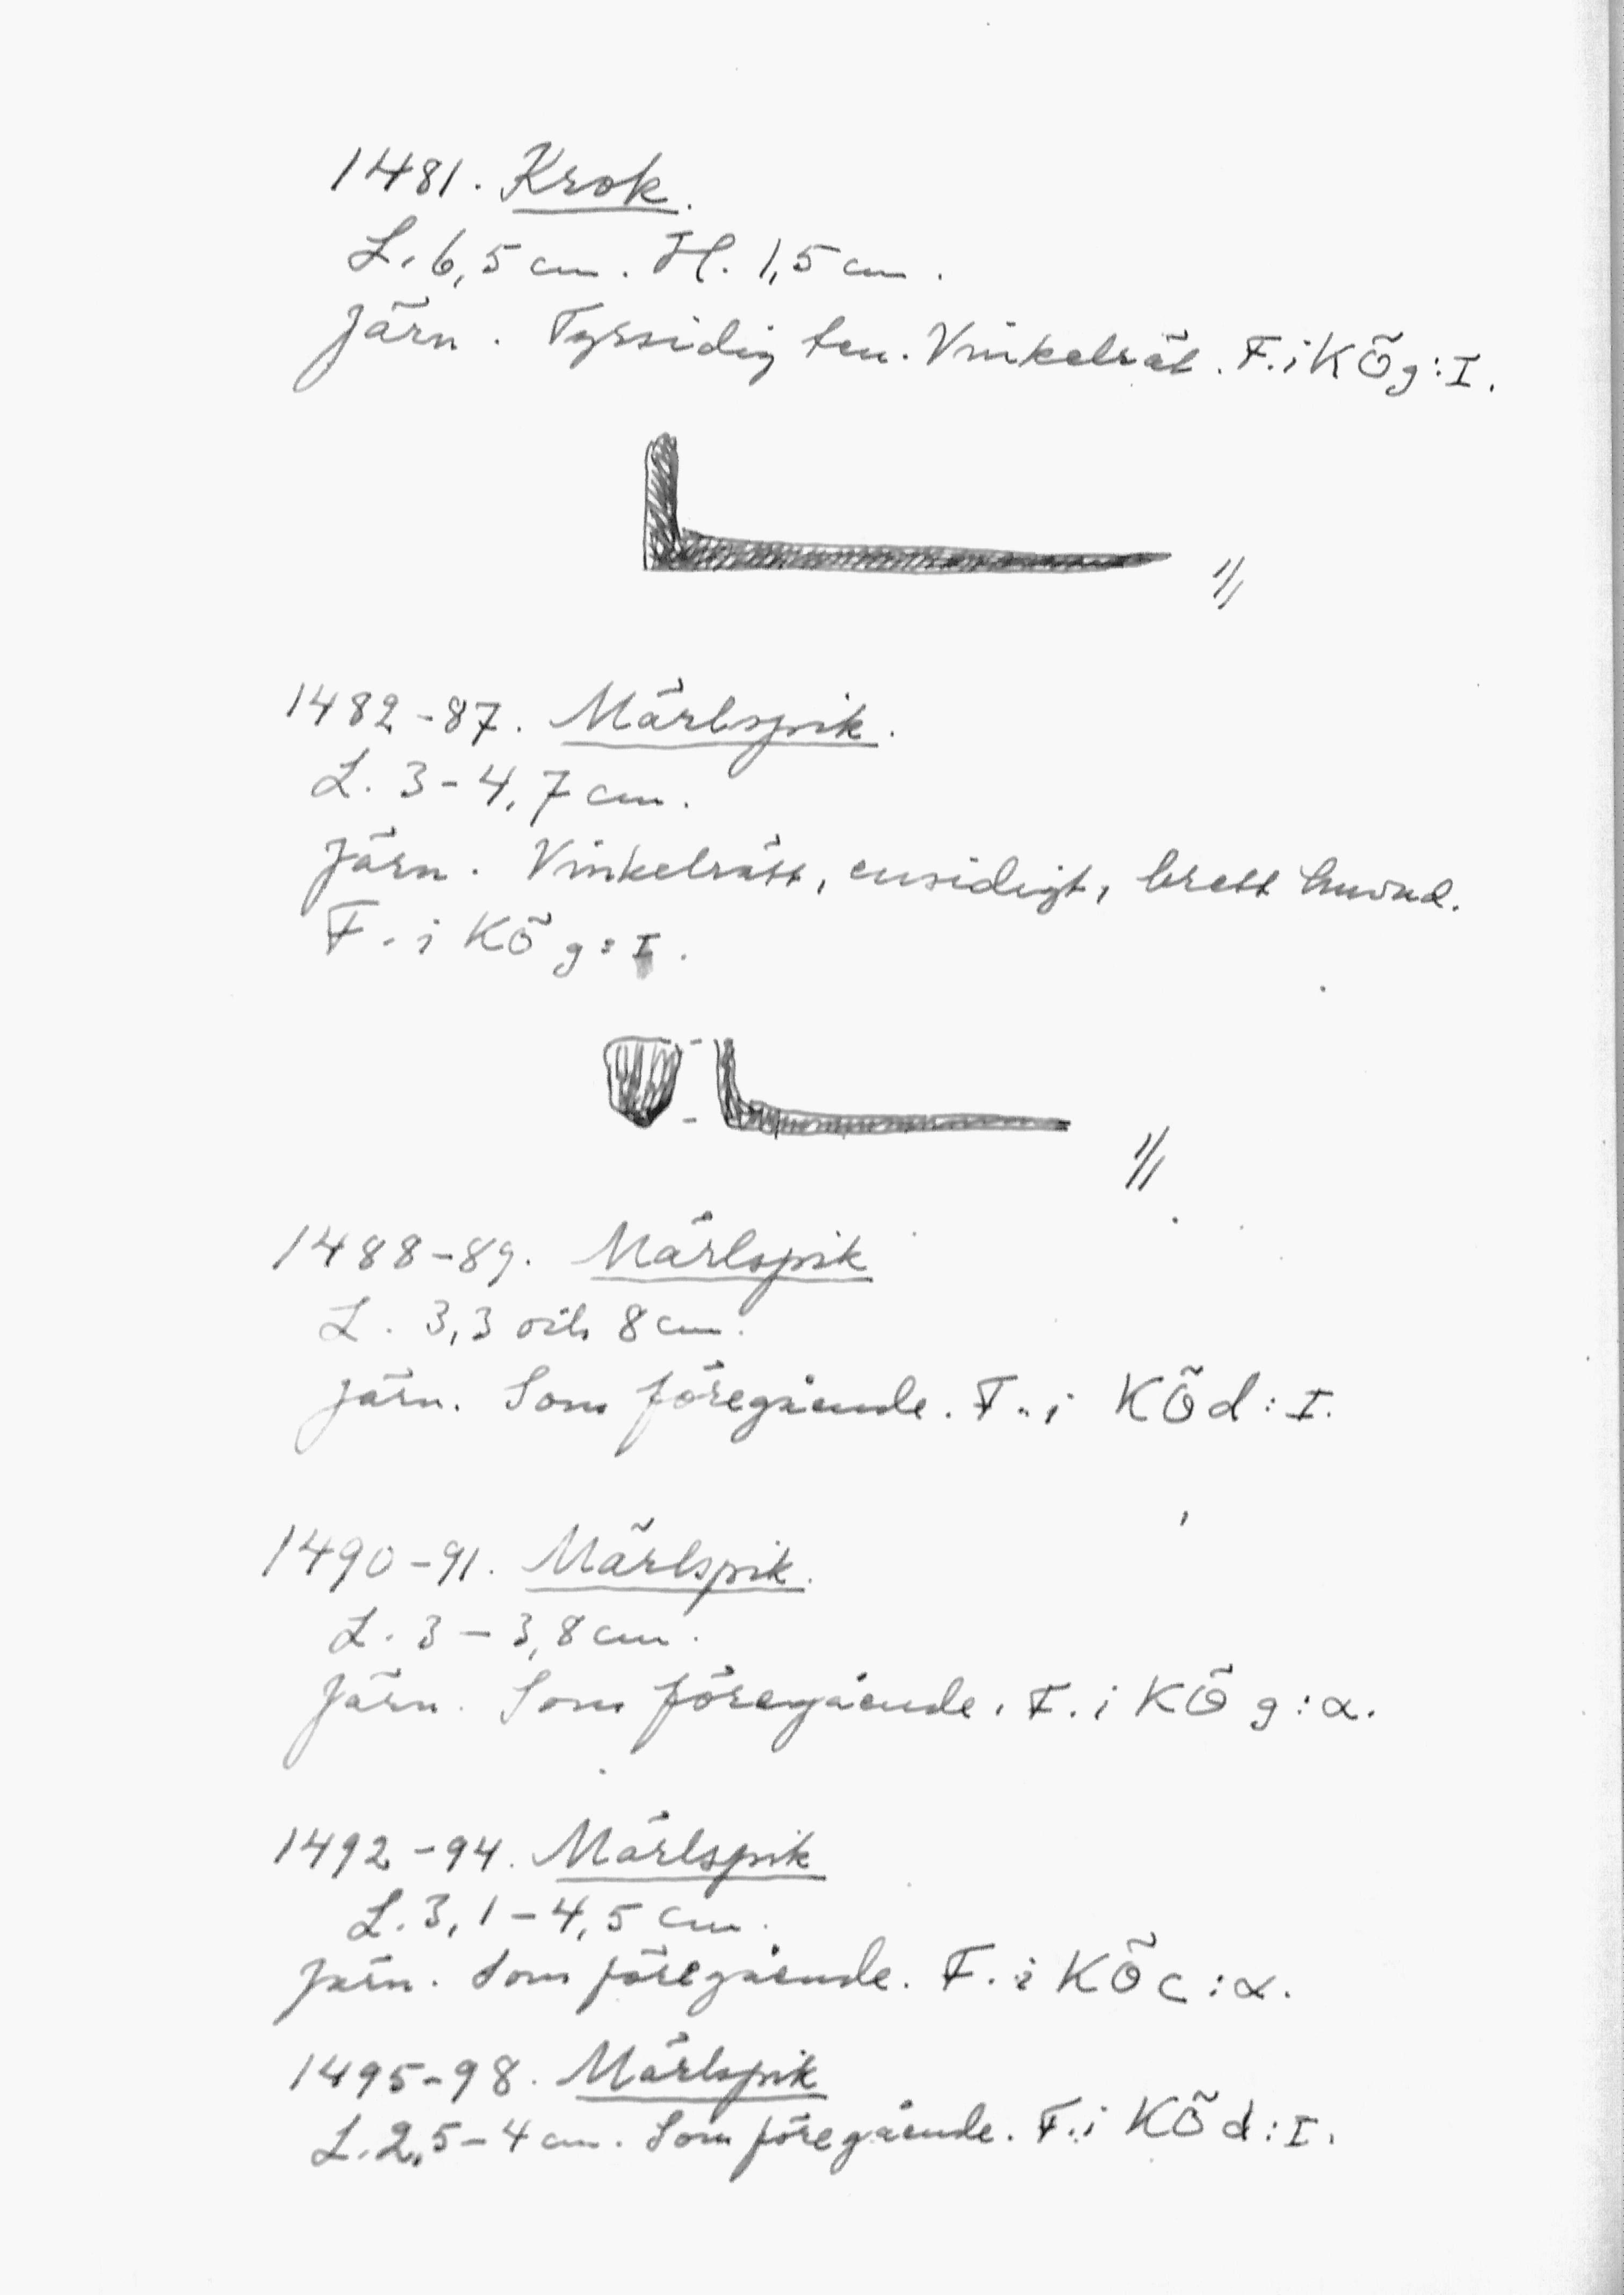 1481. Krok.
L. 6,5 cm. H. 1,5 cm.
Järn. Fyrsidig ten. Vinkelrät. F. i KÖg:I.
1/1
1482-87. Märlspik.
L. 3-4,7 cm.
Järn. Vinkelrätt, ensidigt, brett huvud.
F. i KÖg:I.
1/1
1488-89. Märlspik
L. 3,3 och 8 cm.
Järn. Som föregående. F. i KÖd:I.
1490-91. Märlspik.
L. 3-3,8 cm.
Järn. Som föregående. F. i KÖg:α.
1492-94. Märlspik
L. 3,1-4,5 cm.
Järn. Som föregående. F. i KÖc:α.
1495-98. Märlspik
L. 2,5-4 cm. Som föregående. F. i KÖd:I.